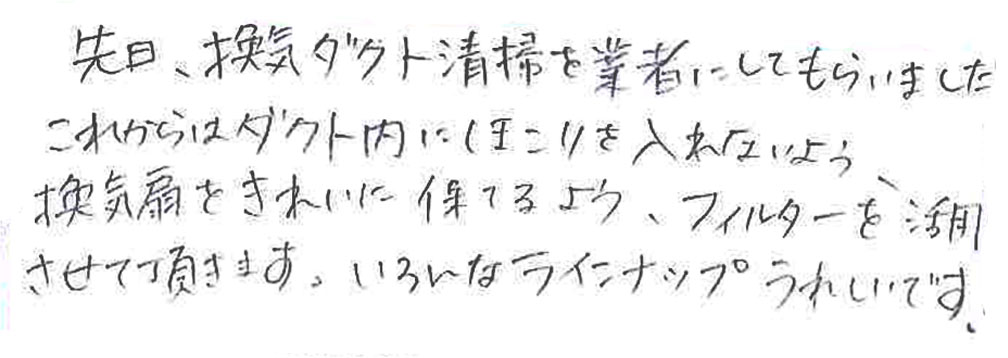 先日、換気ダクト清掃を業者にしてもらいました
これからはダクト内にほこりを入れないよう、
換気扇をきれいに保てるよう、フィルターを活用
させて頂きます。いろんなラインナップうれしいです。